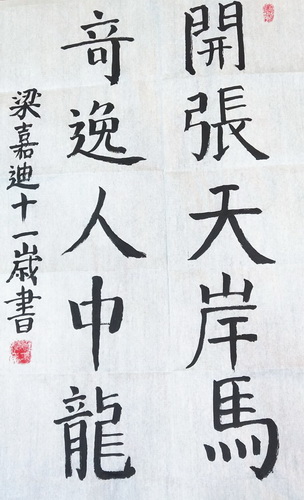 開張天岸馬
奇逸人中龍
梁嘉迪十一歲書